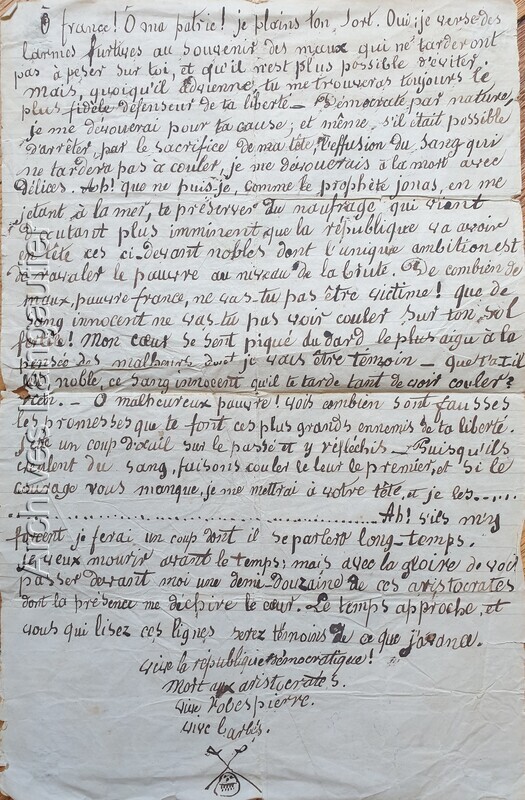 Ô france! Ô ma patrie! je plains ton sort. Oui, je verse des
larmes furtives au souvenir des maux qui ne tarderont
pas à peser sur toi, et qu'il n'est plus possible d'éviter.
mais, quoiqu'il advienne, tu me trouveras toujours le
plus fidèle défenseur de ta liberté – Démocrate par nature,
je me dévouerai pour ta cause; et même, s'il était possible
d'arrêter, par le sacrifice de ma tête, l'effusion du sang qui
ne tardera pas à couler, je me dévouerais à la mort avec
délices. Ah! que ne puis-je, comme le prophète jonas, en me
jetant à la mer, te préserver du naufrage, qui vient
d'autant plus imminent que la république va avoir
en tête ces ci-devant nobles dont l'unique ambition est
de ravaler le pauvre au niveau de la brute. Ô De combien de
maux, pauvre france, ne vas-tu pas être victime! que de
sang innocent ne vas-tu pas voir couler sur ton sol
! Mon cœur se sent piqué du dard le plus aigu à la
pensée des malheurs dont je vais être temoin – que t'a-t-il
le noble, ce sang innocent qu'il te tarde tant de voir couler?
rien. – O malheureux pauvre! vois combien sont fausses
les promesses que te font ces plus grands ennemis de ta liberté.
un coup d'œuil sur le passé et y réfléchis – Puisqu'ils
veulent du sang, faisons couler le leur le premier, et si le
courage vous manque, je me mettrai à votre tête, et je les......
.......................................... Ah! s'ils m'y
forcent je ferai un coup dont il se parlera long-temps.
veux mourir avant le temps; mais avec la gloire de voir
passer devant moi une demi-douzaine de ces aristocrates
dont la présence me déchire le cœur. Le temps approche, et
vous qui lisez ces lignes serez témoins de ce que j'avance.
vive la république démocratique!
Mort aux aristocrates.
vive Robespierre.
vive barbès.